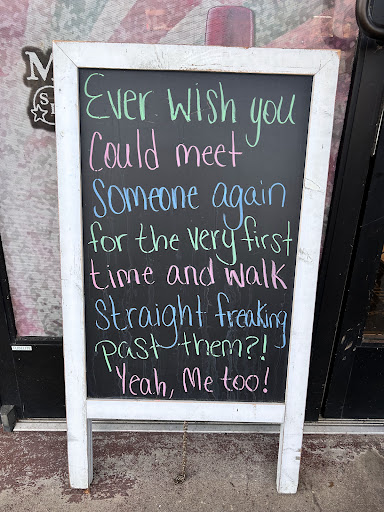 Ever wish you
Could meet
Someone again
for the very first
time and walk
Straight freaking
past them?!
Yeah, Me too!